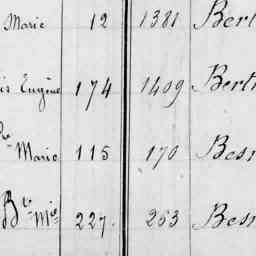 Marie 12 1381 Bert
is Eugène 174 1409 Bert
Marie 115 170 Bess
Bte Mie 227. 253 Bess